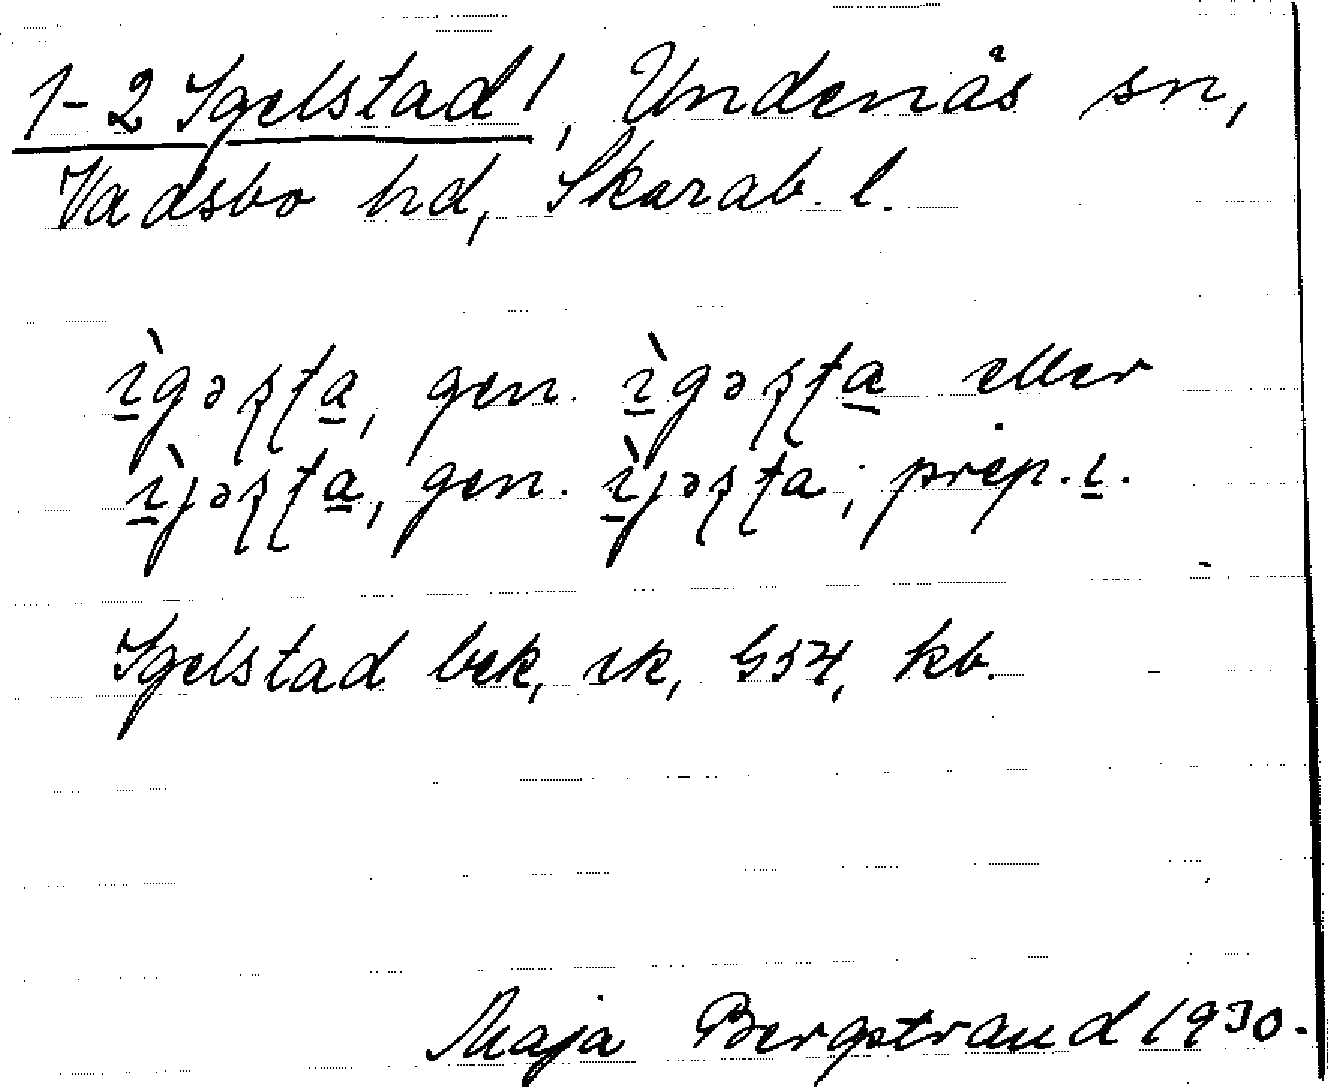 1-2 Igelstad!, Undenäs sn,
Vadsbo hd, Skarab. l.
ì̱gəʂʈa̱, gen. ì̱gəʂʈa̱ eller
ì̱jəʂʈa̱, gen. ì̱jəʂʈa; prep. i̱.
Igelstad bek, ek, G34, kb.
Maja Bergstrand 1930.